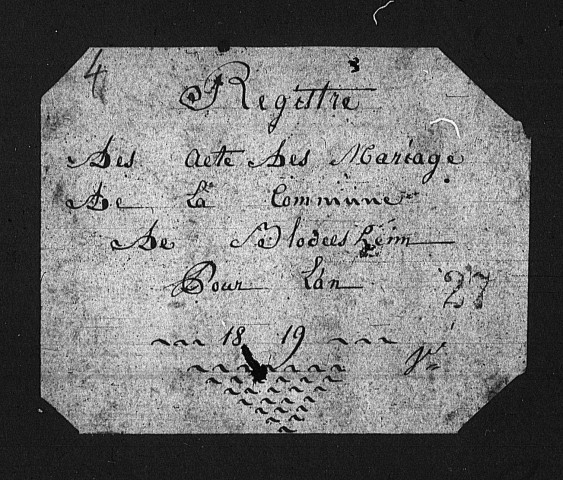 4
Registre
Des Acte Des Mariage
De La Commune
De Blodelsheim
Pour Lan
27
18 19